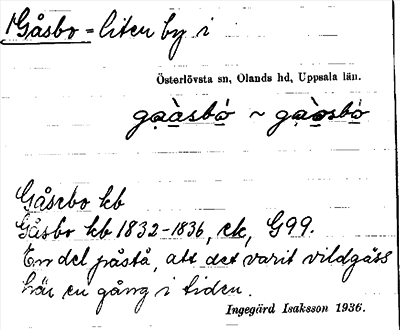 Gåsbo = liten by i
Österlövsta sn, Olands hd, Uppsala län.
gạàsbó ~ gạòsbó
Gåsebo kb
Gåsbo kb 1832-1836, ek, G99.
En del påstå, att det varit vildgäss
här en gång i tiden.
Ingegärd Isaksson 1936.